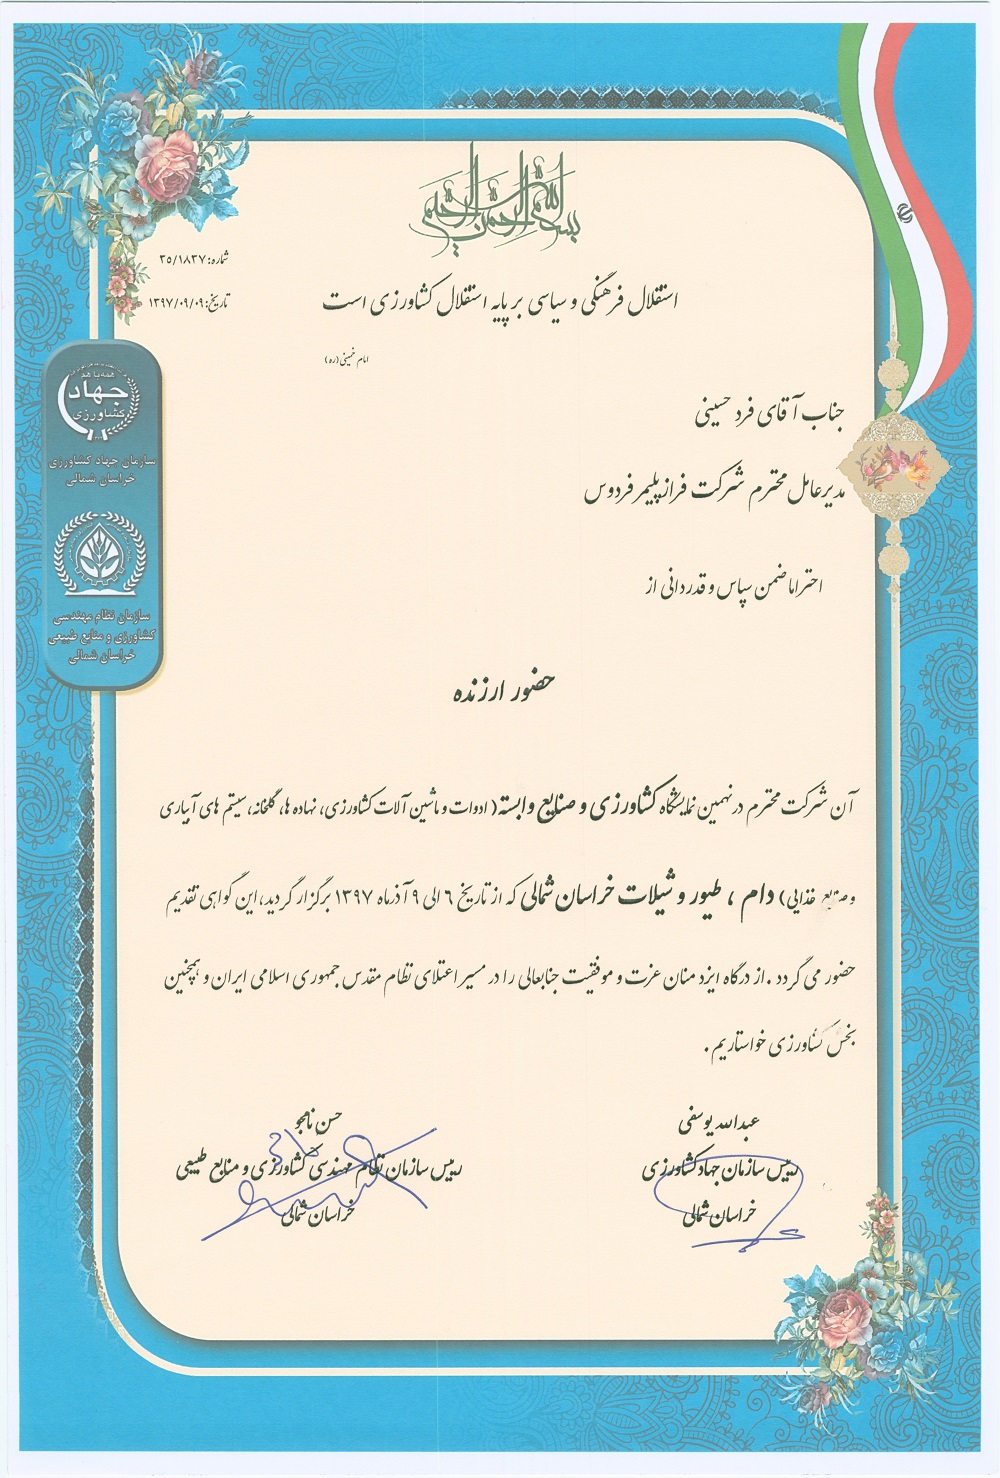 بسم الله الرحمن الرحیم
شماره: ۳۵/۱۸۳۷
تاریخ: ۱۳۹۷/۰۹/۰۹
استقلال فرهنگی و سیاسی بر پایه استقلال کشاورزی است
امام خمینی (ره)
همه با هم
جهاد
کشاورزی
سازمان جهاد کشاورزی
خراسان شمالی
سازمان نظام مهندسی
کشاورزی و منابع طبیعی
خراسان شمالی
جناب آقای فرد حسینی
مدیر عامل محترم شرکت فراز پلیمر فردوس
احتراما ضمن سپاس و قدردانی از
حضور ارزنده
آن شرکت محترم در نهمین نمایشگاه کشاورزی و صنایع وابسته( ادوات و ماشین آلات کشاورزی، نهاده ها، گلخانه، سیستم های آبیاری
و صنایع غذایی) دام ، طیور و شیلات خراسان شمالی که از تاریخ ۶ الی ۹ آذرماه ۱۳۹۷ برگزار گردید، این گواهی تقدیم
حضور می گردد . از درگاه ایزد منان عزت و موفقیت جنابعالی را در مسیر اعتلای نظام مقدس جمهوری اسلامی ایران و همچنین
بخش کشاورزی خواستاریم .
عبدالله یوسفی
رییس سازمان جهاد کشاورزی
خراسان شمالی
حسن نامجو
رییس سازمان نظام مهندسی کشاورزی و منابع طبیعی
خراسان شمالی